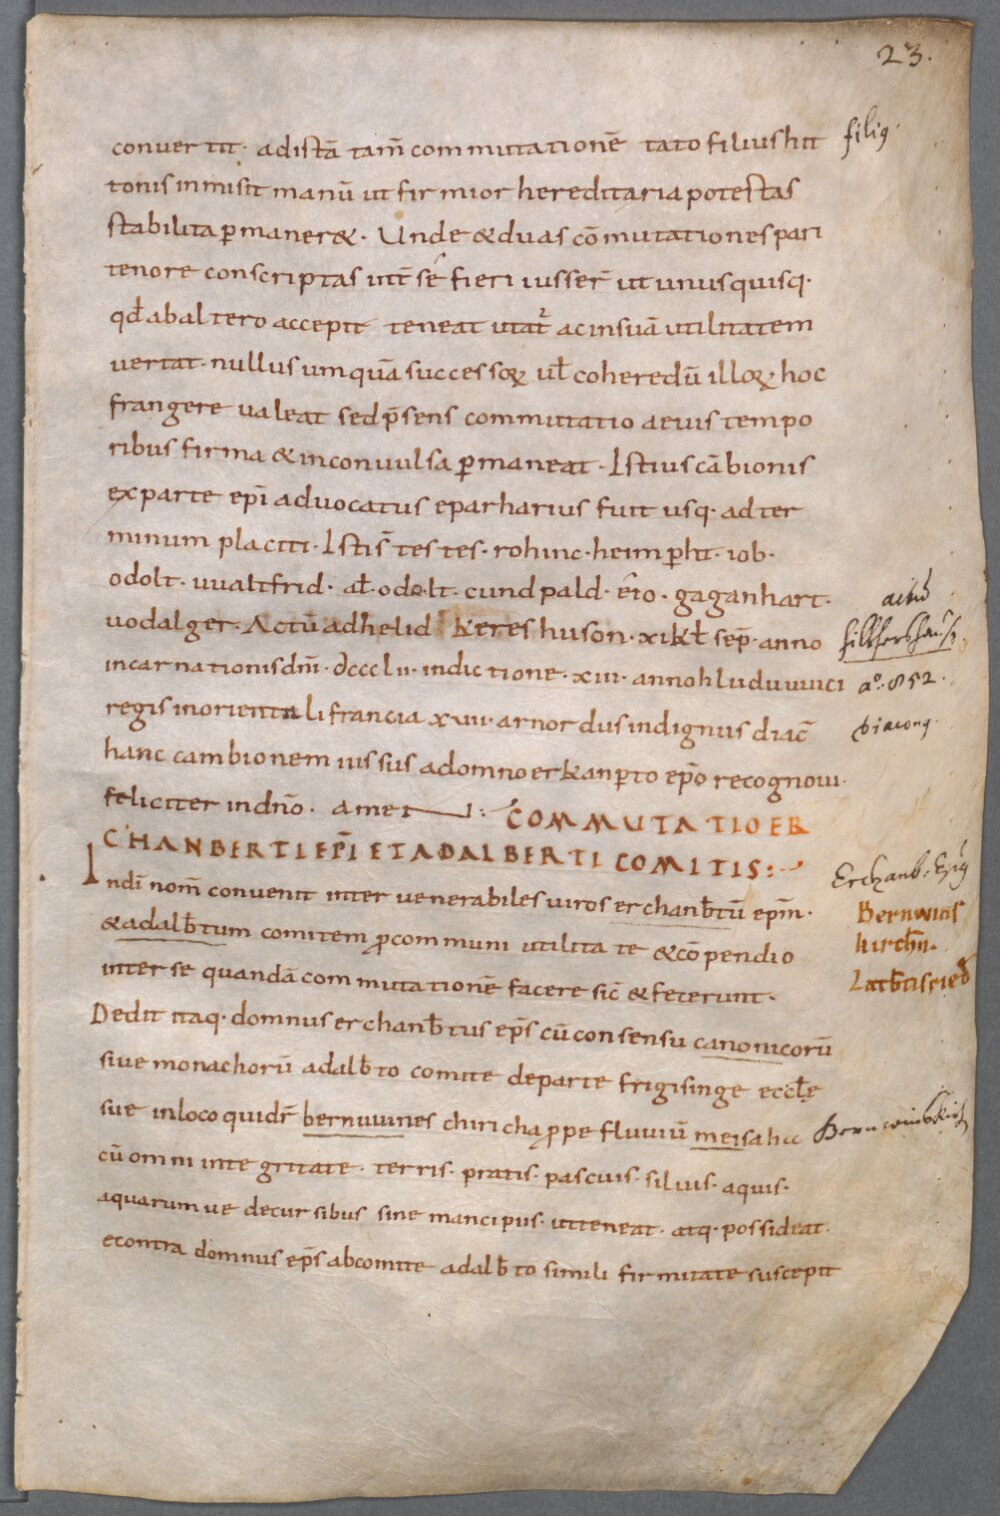 23.
conuertit· adistā tam̄ commutationē tato filius hit
filiꝯ
tonis inmisit manū ut firmior hereditaria potestas
stabilita ꝑmaner&· Unde & duas cōmutationes pari
tenore conscriptas int̄ sé fieri iusser̄ ut unusquisq·
qđ abaltero accepit teneat utat᷑ ac insuā utilitatem
uertat· nullus umquā successoꝝ ul̄ coheredū illoꝝ hoc
frangere ualeat sed p̄sens commutatio aeuis tempo
ribus firma & inconuulsa ꝑmaneat· Istius cābionis
exparte ep̄i aduocatus eparharius fuit usq· ad ter
minum placiti· Istis̄ testes· rohinc· heimꝑht· iob·
odolt· uualtfrid· al̄· odolt· cundpald· ērio· gaganhart·
uodalger· Actū ad helid kereshuson· xi kł sep̄· anno
hilkhershaus
incarnationis dn̄i· dccclii· indictione· xiii· anno hluduuuici
aº· 852·
regis in orientali francia xuii· arnordus indignus diac̄
diaconꝯ
hanc cambionem iussus adomno erkanꝑto ep̄o recognoui·
feliciter in dn̄o· amen: COMMUTATIO ER
CHANBERTI EP̄I ET ADALBERTI COMITIS:
Indī nom̄ conuenit inter uenerabiles uiros erchanb̄tū ep̄m·
Erchanb· Ep̄ꝯ
& adalb̄tum comitem ꝓcommuni utilitate & cōpendio
Bernwins
kirch̄n·
inter se quandā commutationē facere sic̄ & fecerunt·
Dedit itaq· domnus erchanb̄tus ep̄s cū consensu canonicorū
siue monachorū adalb̄to comite de parte frigisinge eccl̄ę
sue in loco qui dr̄ bernuuines chiricha ꝓpe fluuiū meisaha
Bernwinskirch
cū omni integritate· terris· pratis· pascuis· siluis· aquis·
aquarumue decursibus sine mancipiis· ut teneat· atq· possideat·
econtra domnus ep̄s ab comite adalb̄to simili firmitate suscepit